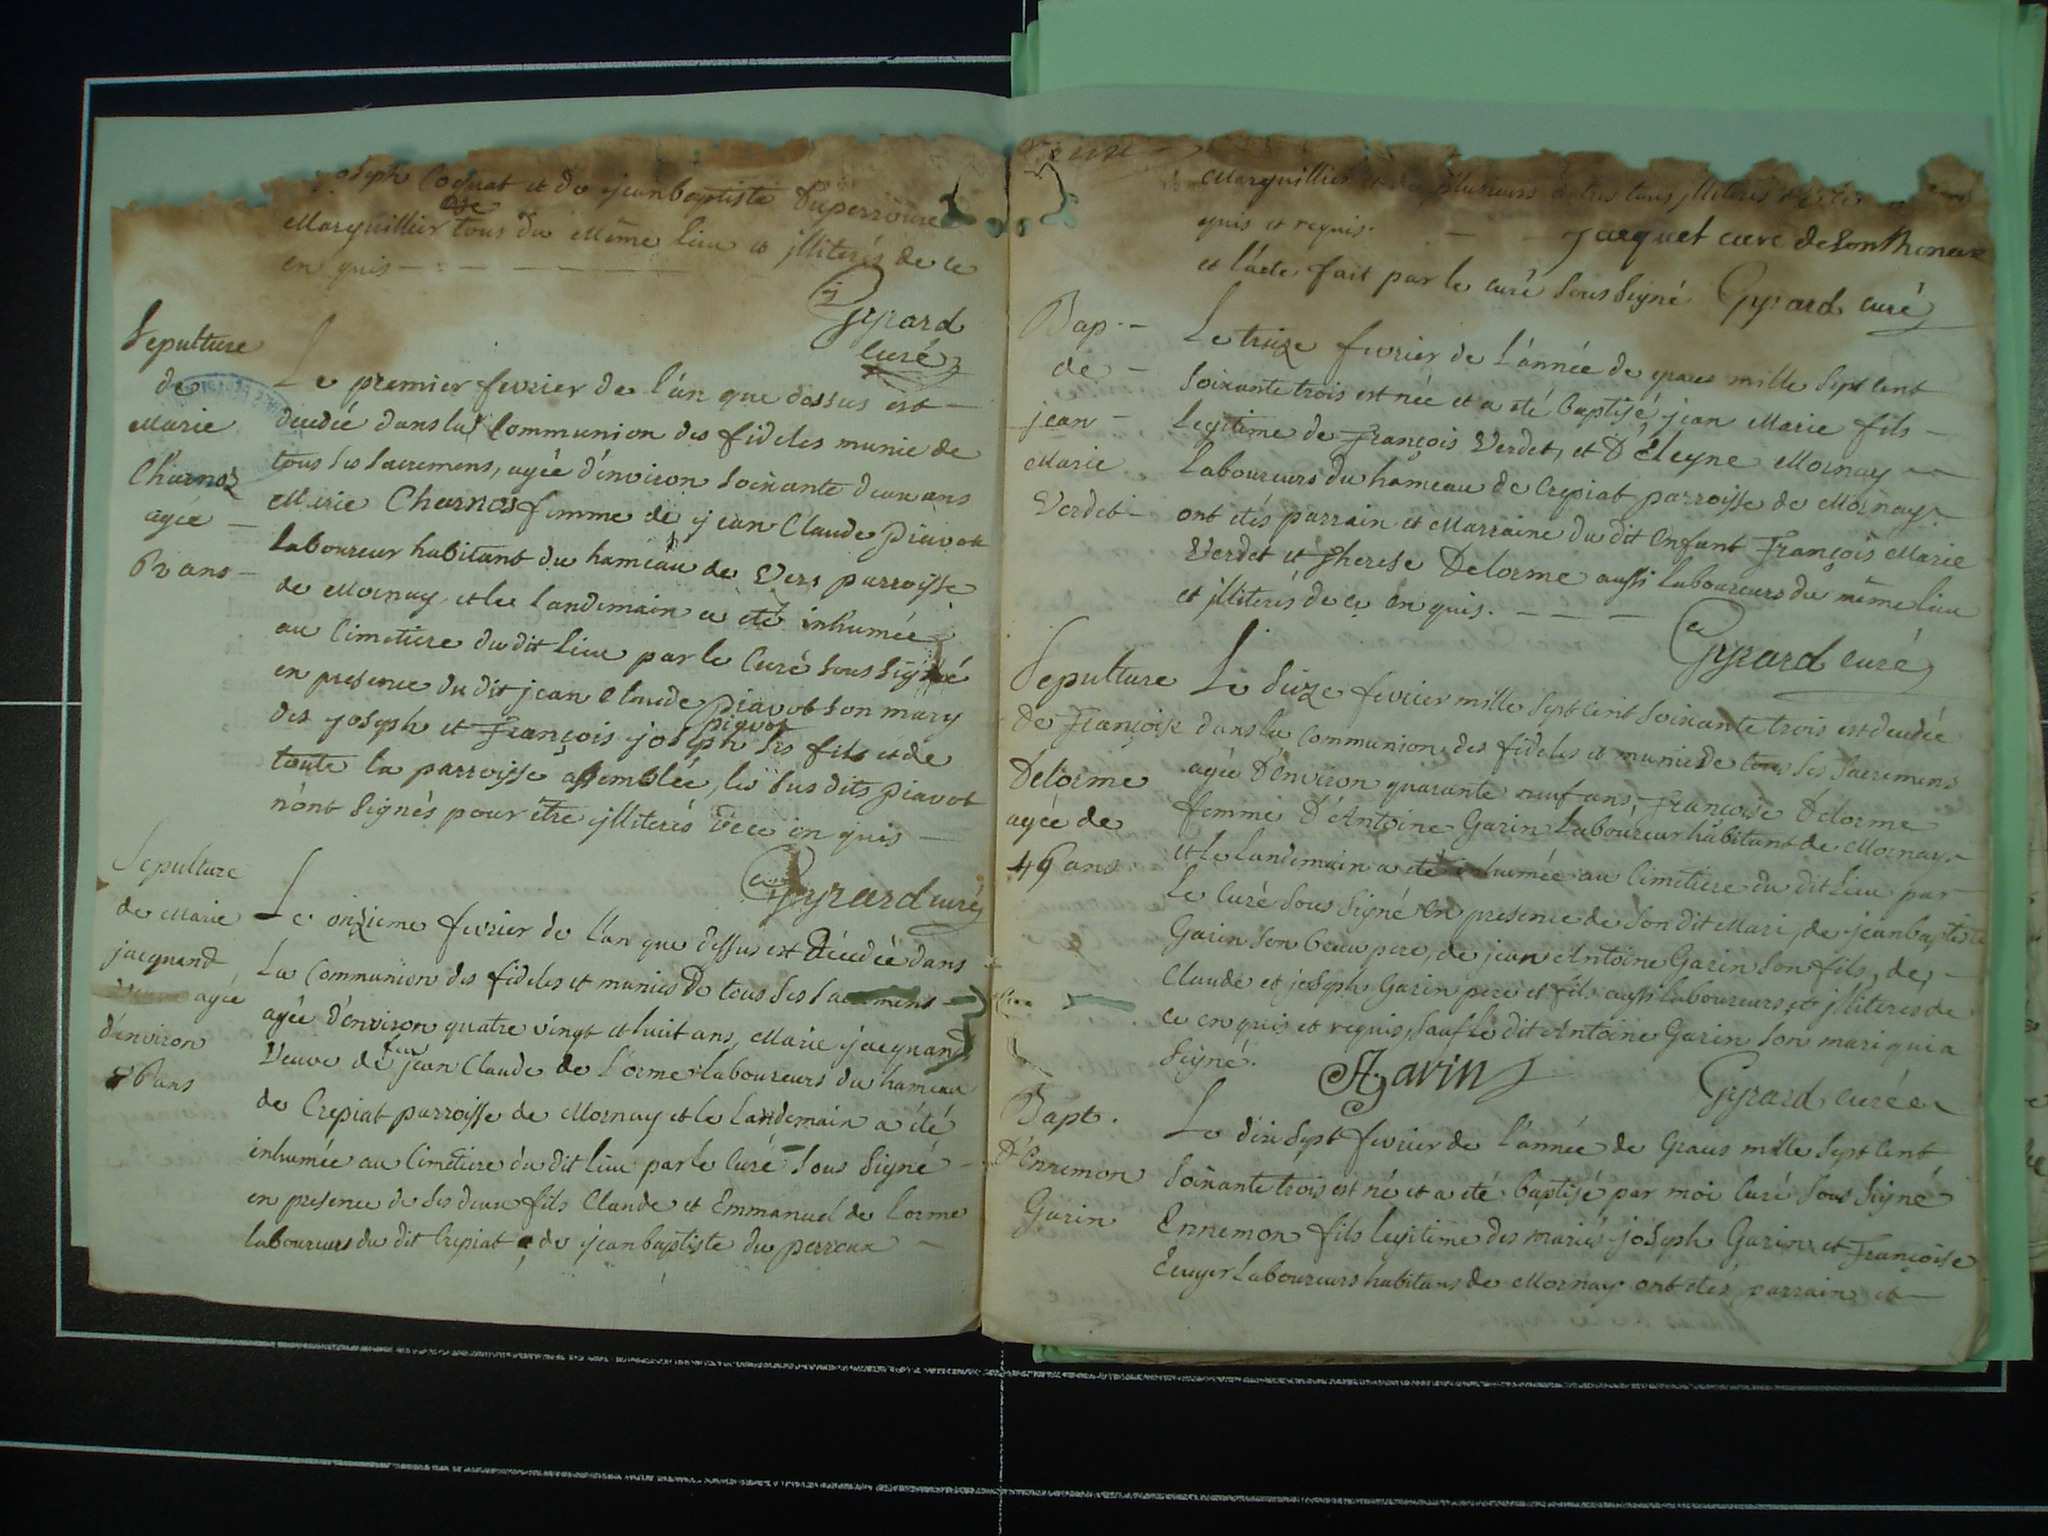 joseph Coquat et de jean baptiste Duperroux
Marguillier tous du même lieu et illiterés de ce
en quis
Gyrard
curé
Sepulture
de
Marie
Charnoz
agée
62 ans
Le premier fevrier de l'an que dessus est
decedée dans la Communion des fideles munie de
tous ses sacremens, agée d'environ soixante deux ans
Marie Charnoz femme de jean Claude Piavot
Laboureur habitant du hameau de Vers parroisse
de Mornay et le landemain a eté inhumée
au Cimetiere du dit lieu par le Curé sous signé
en presence du dit jean Claude Piavot son mary
des joseph et François joseph piavot ses fils et de
toute la parroisse assemblée, les sus dits Piavot
n'ont signés pour être illiterés de ce en quis
Gyrard curé
Sepulture
de Marie
jacquand
agée
d'environ
86 ans
Le onzieme fevrier de l'an que dessus est Décedée dans
La Communion des fideles et munie de tous ses sacremens
agée d'environ quatre vingt et huit ans, Marie jacquand
Veuve de feu jean Claude de l'orme laboureurs du hameau
de Crepiat parroisse de Mornay et le landemain a été
inhumée au Cimetiere du dit lieu par le Curé sous signé
en presence de ses deux fils Claude et Emmanuel de lorme
laboureurs du dit Crepiat de jean baptiste du perroux
Marguillier et de plusieurs autres tous illiterés
quis et requis.
Jacquet curé de
et l'acte fait par le curé sous signé Gyrard curé
Bap.
de
jean
Marie
Verdet
Le treize fevrier de l'année de grace mille sept cent
soixante trois est née et a eté baptisé jean Marie fils
legitime de François Verdet, et D'éleyne Mornay
Laboureurs du hameau de Crepiat parroisse de Mornay.
ont etés parrain et Marraine du dit enfant François Marie
Verdet et Therese Delorme aussi laboureurs du même lieu
et illiterés de ce en quis.
Gyrard curé
Sepulture
de Françoise
Delorme
agée de
49 ans
Le seize fevrier mille sept cent soixante trois est decedée
dans la communion des fideles et munie de tous ses sacremens
agée D'environ quarante neuf ans, Françoise Delorme
femme D'Antoine Garin Laboureur habitant de Mornay
et le landemain a eté inhumée au Cimetiere du dit lieu par
Le Curé sous signé en presence de son dit Mari, de jean baptiste
Garin son beau pere, de jean Antoine Garin son fils, de
Claude et joseph Garin pere et fils aussi laboureurs et illiteres de
ce en quis et requis, sauf le dit Antoine Garin son mari qui a
signé.
A Garin
Gyrard curé
Bapt.
D'Ennemon
Garin
Le dix sept fevrier de l'année de Grace mille sept cent
soixante trois est né et a eté baptisé par moi Curé sous signé
Ennemon fils legitime des mariés joseph Garin et Françoise
Ecuyer Laboureurs habitans de Mornay ont etés parrain et